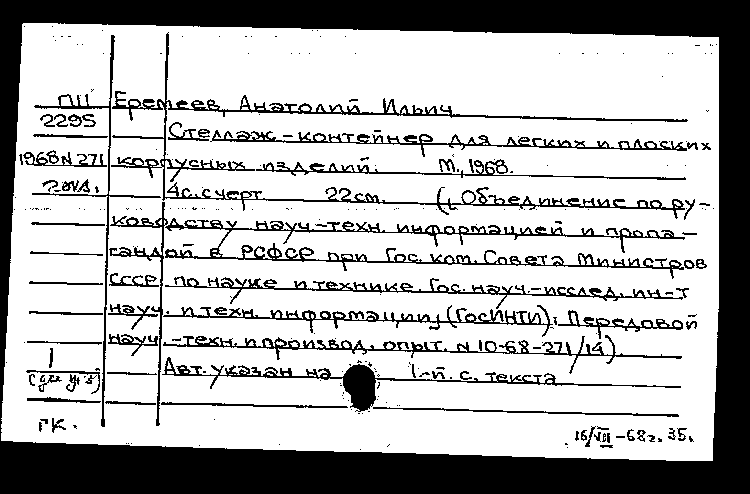 П11 Еремеев, Анатолий Ильич
2295
Стеллаж-контейнер для легких и плоских
1968 N 271 корпусных изделий. М., 1968.
4с. с черт. 22см. (Объединение по ру-
ководству науч.-техн. информацией и пропа-
гандой в РСФСР при Гос. ком. Совета Министров
СССР по науке и технике. Гос. науч.-исслед. ин-т
науч. и техн. информации (ГосИНТИ). Передовой
науч.-техн. и производ. опыт. N 10-68-271/14)
1
Авт. указан на 1-й с. текста
ГК.
16/VII-68г. 35.